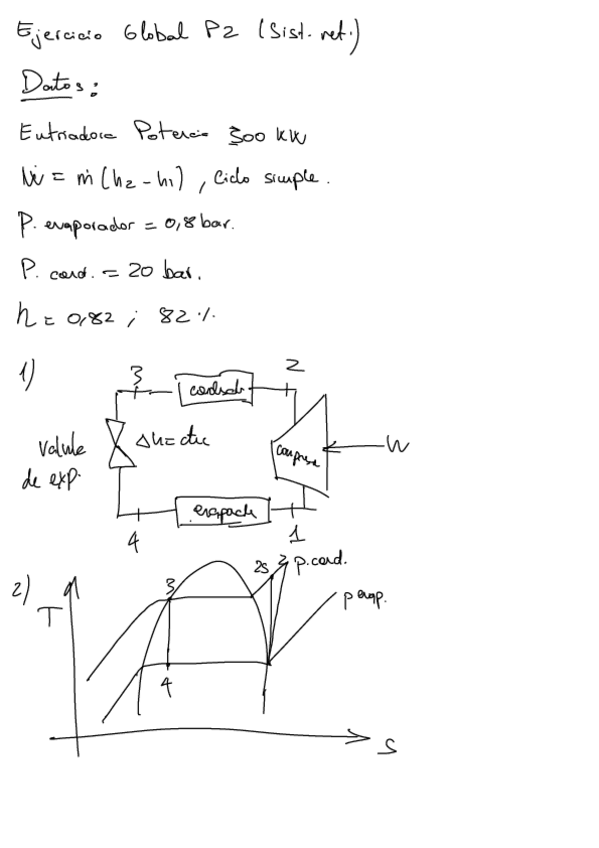 Ejercicio Global P2 (Sist. ref.)
Datos:
Enfriadora Potencia 300 kW
Ẇ = ṁ (h2 - h1) , Ciclo simple.
P. evaporador = 0,8 bar.
P. cond. = 20 bar.
η = 0,82 ; 82 %
1)
3
2
condsad
valvula
de exp.
Δh = ctc
compresor
W
evaporador
4
1
2)
T
3
2s 2 p. cond.
p evap.
4
S